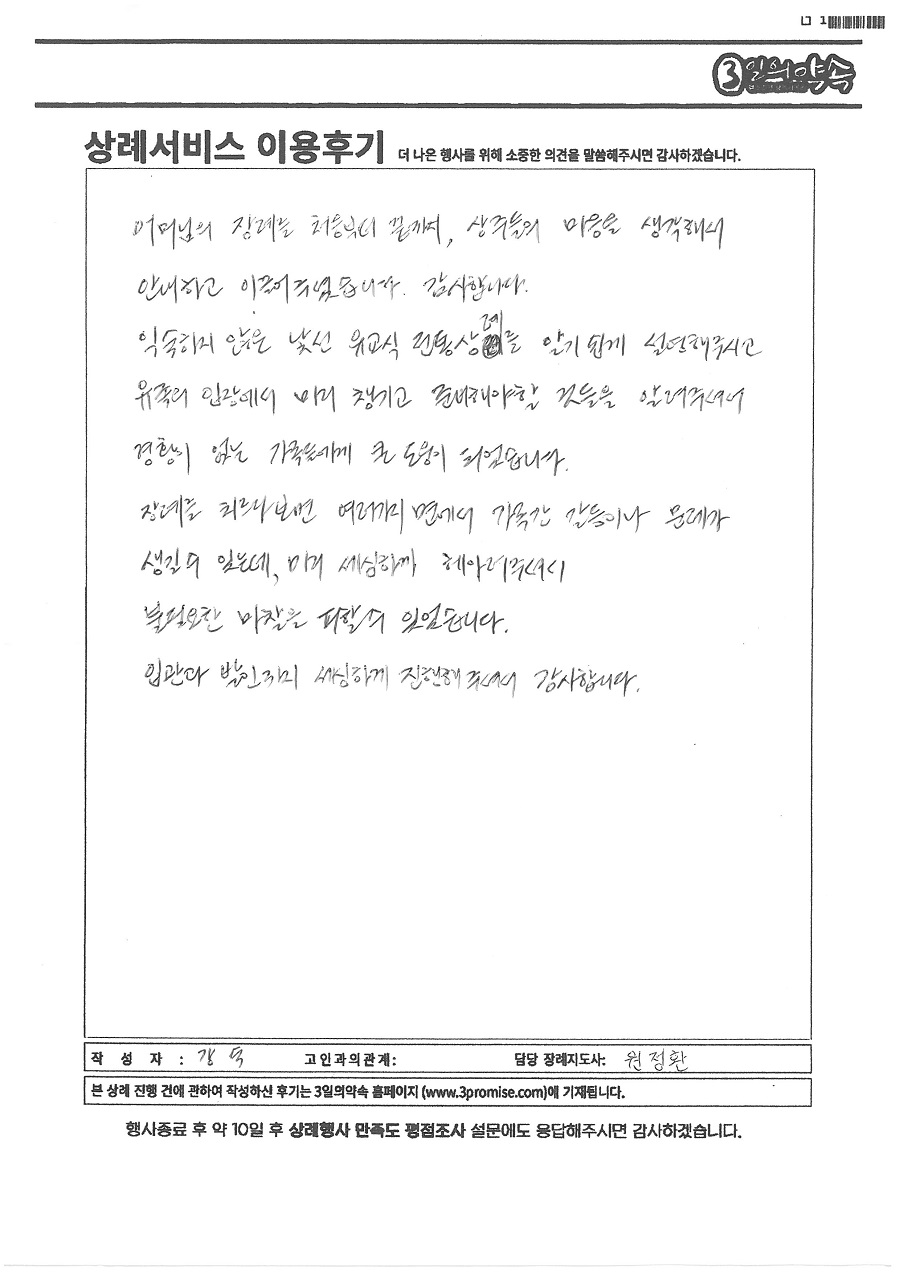 3일의약속
상례서비스 이용후기 더 나은 행사를 위해 소중한 의견을 말씀해주시면 감사하겠습니다.
어머님의 장례를 처음부터 끝까지, 상주들의 마음을 생각해서
안내하고 이끌어주셨습니다. 감사합니다.
익숙하지 않은 낯선 유교식 전통상례를 알기 쉽게 설명해주시고
유족의 입장에서 미리 챙기고 준비해야할 것들을 알려주셔서
경황이 없는 가족들에게 큰 도움이 되었습니다.
장례를 치르다보면 여러가지 면에서 가족간 갈등이나 문제가
생길 수 있는데, 미리 세심하게 헤아려주셔서
불필요한 마찰을 피할 수 있었습니다.
입관과 발인까지 세심하게 진행해주셔서 감사합니다.
작 성 자 : 강 고인과의관계: 담당 장례지도사: 원정환
본 상례 진행 건에 관하여 작성하신 후기는 3일의약속 홈페이지 (www.3promise.com)에 기재됩니다.
행사종료 후 약 10일 후 상례행사 만족도 평점조사 설문에도 응답해주시면 감사하겠습니다.